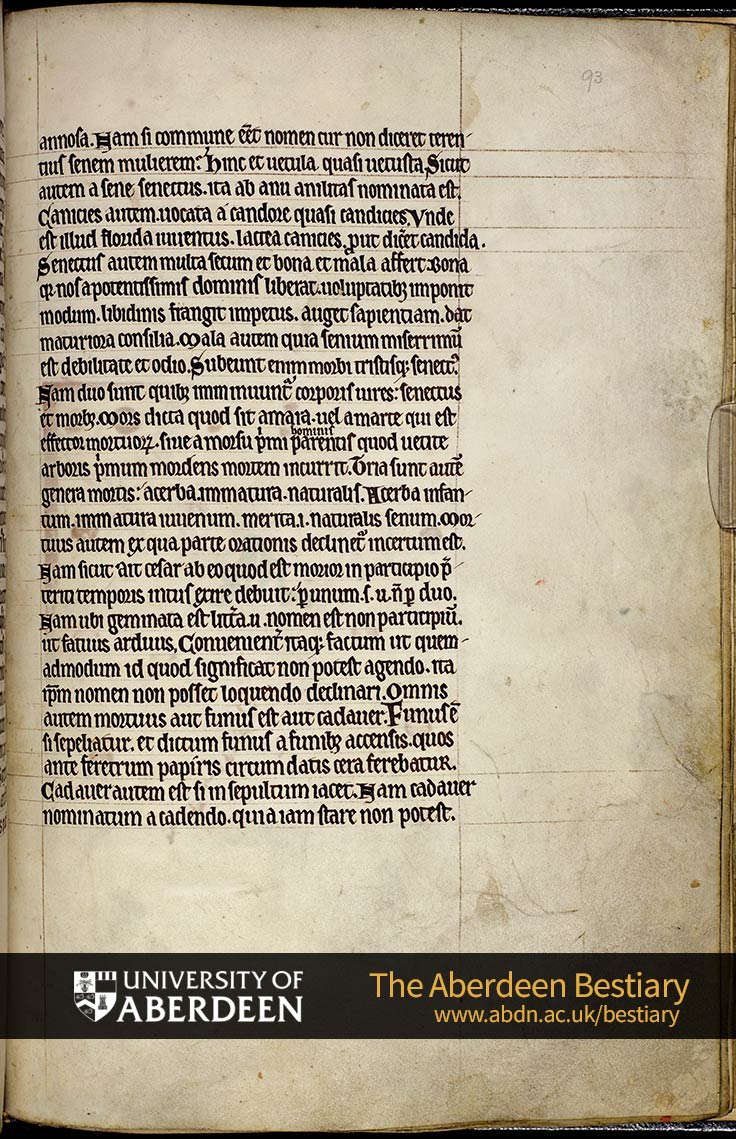 93
annosa. Nam si commune eēt nomen cur non diceret teren-
tius senem mulierem: hinc et uetula quasi uetusta, Sicut
autem a sene senectus. ita ab anu anilitas nominata est.
Canicies autem. uocata a candore quasi candicies, Vnde
est illud florida iuuentus. lactea canicies, ꝓut dic̄et candida.
Senectus autem multa secum et bona et mala affert. Bona
qͥ nos a potentissimis dominis liberat. uoluptatibꝫ imponit
modum. libidinis frangit impetus. auget sapientiam. dat
maturiora consilia. Mala autem quia senium miserrimū
est debilitate et odio. Subeunt enim morbi tristisqꝫ senect᷒.
Nam duo sunt quibꝫ inminuunt᷑ corporis uires: senectus
et morbꝫ. Mors dicta quod sit amara. uel a marte qui est
effector mortuoꝝ. siue a morsu pͥmi hominis parentis quod uetite
arboris pͥmum mordens mortem incurrit. Tria sunt autē
genera mortis: acerba. inmatura. naturalis. Acerba infan-
tum. inmatura iuuenum. merita .i. naturalis senum. Mor-
tuus autem ex qua parte orationis declinet᷑ incertum est.
Nam sicut ait cesar ab eo quod est morior in participio p̄-
teriti temporis intus exire debuit: ꝑ unum .s. u. n̄ ꝑ duo.
Nam ubi geminata est litt̄a .u. nomen est non participiū.
ut fatuus arduus, Conuenient᷑ itaqꝫ factum ut quem-
admodum id quod significat non potest agendo. ita
ip̄m nomen non posset loquendo declinari. Omnis
autem mortuus aut funus est aut cadauer. Funus ē
si sepeliatur. et dictum funus a funibꝫ accensis. quos
ante feretrum papiris circumdatis cera ferebatur.
Cadauer autem est si insepultum iacet. Nam cadauer
nominatum a cadendo. quia iam stare non potest.
UNIVERSITY OF
ABERDEEN
The Aberdeen Bestiary
www.abdn.ac.uk/bestiary